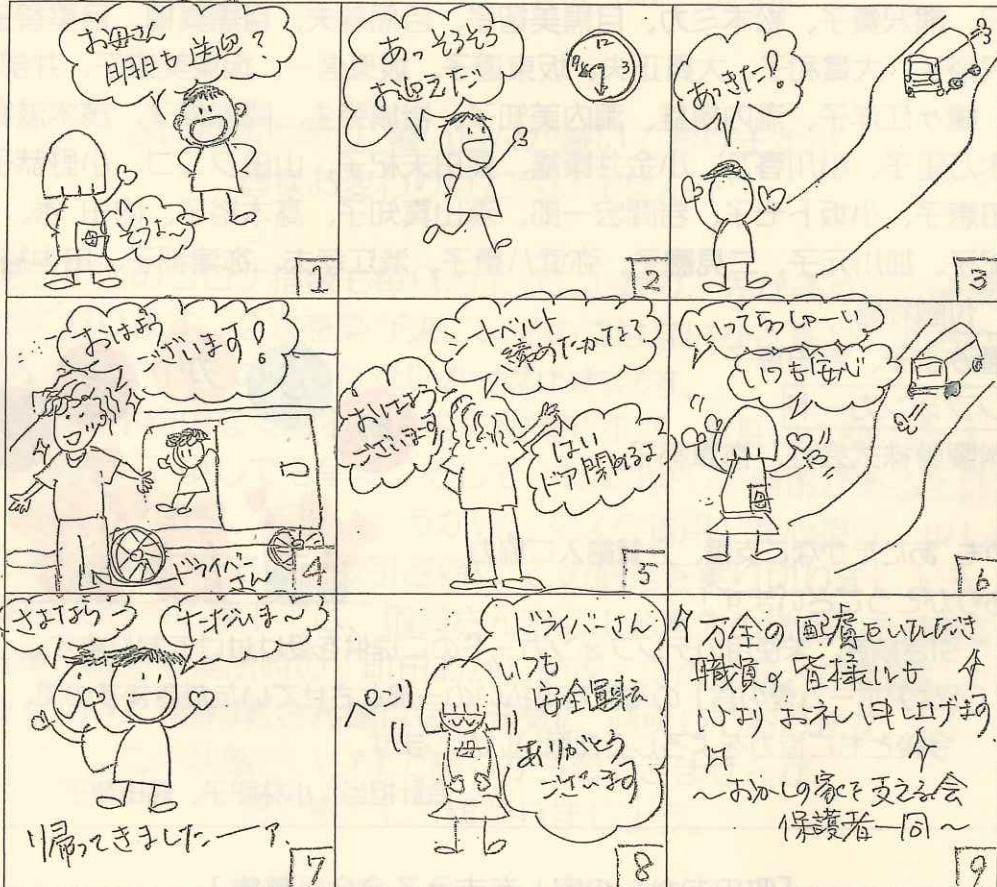 お母さん
明日も生囲?
そうよ〜
母
1
あっそろそろ
お迎えだ
12
2
あっきた!
3
おはよう
ございます!
ドライバー
さん
4
おはよう
ございます
シートベルト
締めたかな?
はい
ドア閉めるよ
5
いってらっしゃーい
いつも安心
母
6
さよなら〜
ただいま〜
帰ってきましたーァ
7
ドライバーさん
いつも
安全運転
ありがとう
ございます
ペコリ
母
8
万全の配慮をいただき
職員の皆様にも
心よりお礼申し上げます
〜おかしの家を支える会
保護者一同〜
9